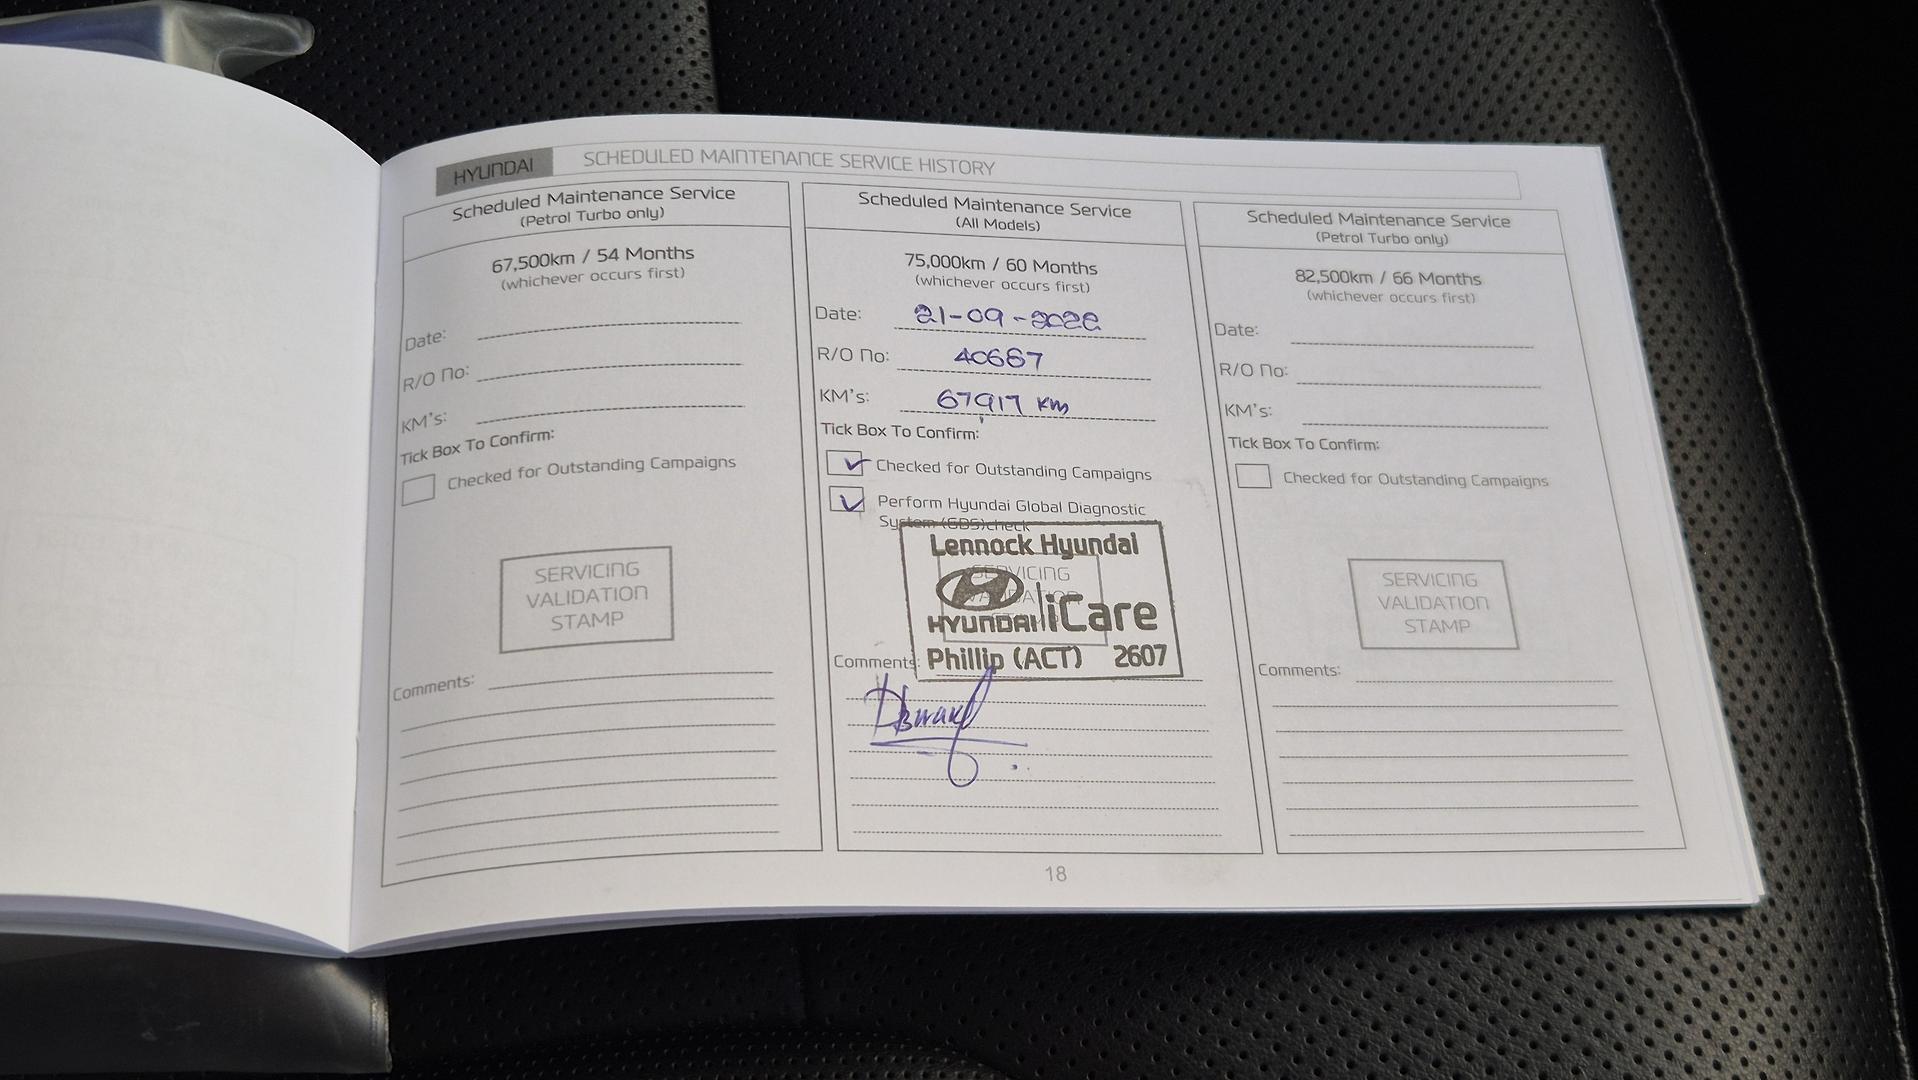 HYUNDAI SCHEDULED MAINTENANCE SERVICE HISTORY
Scheduled Maintenance Service
(Petrol Turbo only)
67,500km / 54 Months
(whichever occurs first)
Date:
R/O No:
KM's:
Tick Box To Confirm:
Checked for Outstanding Campaigns
SERVICING
VALIDATION
STAMP
Comments:
Scheduled Maintenance Service
(All Models)
75,000km / 60 Months
(whichever occurs first)
Date: 21-09-2022
R/O No: 40687
KM's: 67917 KM
Tick Box To Confirm:
Checked for Outstanding Campaigns
Perform Hyundai Global Diagnostic
System (GDS)check
Lennock Hyundai
SERVICING
VALIDATION
HYUNDAI iCare
Phillip (ACT) 2607
Comments:
Scheduled Maintenance Service
(Petrol Turbo only)
82,500km / 66 Months
(whichever occurs first)
Date:
R/O No:
KM's:
Tick Box To Confirm:
Checked for Outstanding Campaigns
SERVICING
VALIDATION
STAMP
Comments:
18